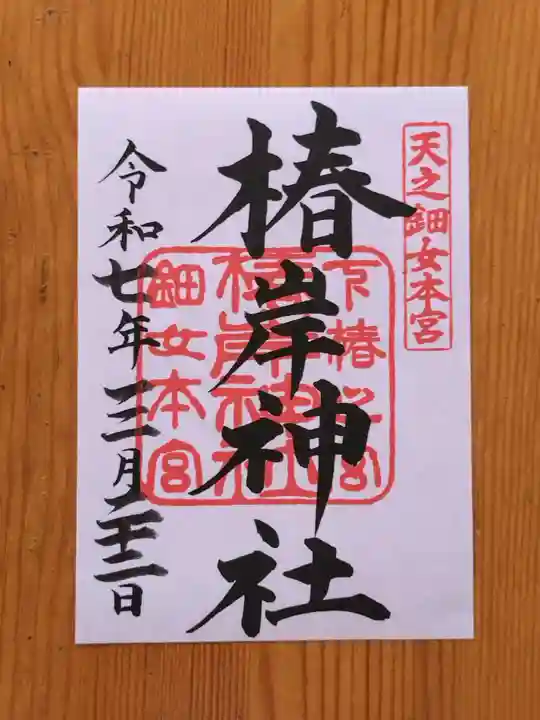 天之鈿女本宮
椿岸神社
下椿之宮
椿岸神社
鈿女本宮
令和七年三月二十二日